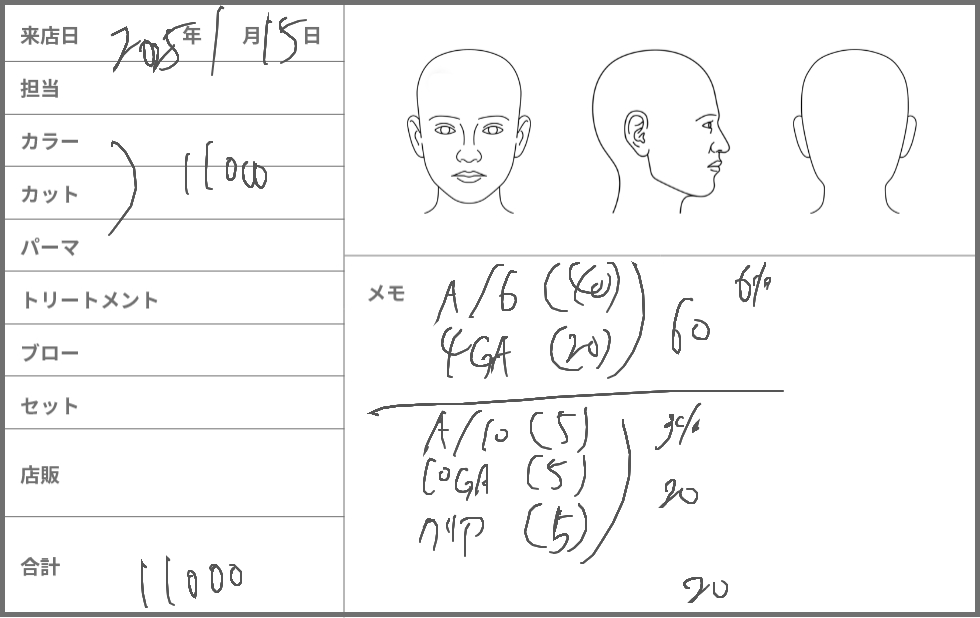 来店日 2025年 1月15日
担当
カラー
カット 11000
パーマ
トリートメント
ブロー
セット
店販
合計 11000
メモ
A/6 (40) 6%
4GA (20) 60
A/10 (5) 3%
10GA (5) 20
クリア (5)
20